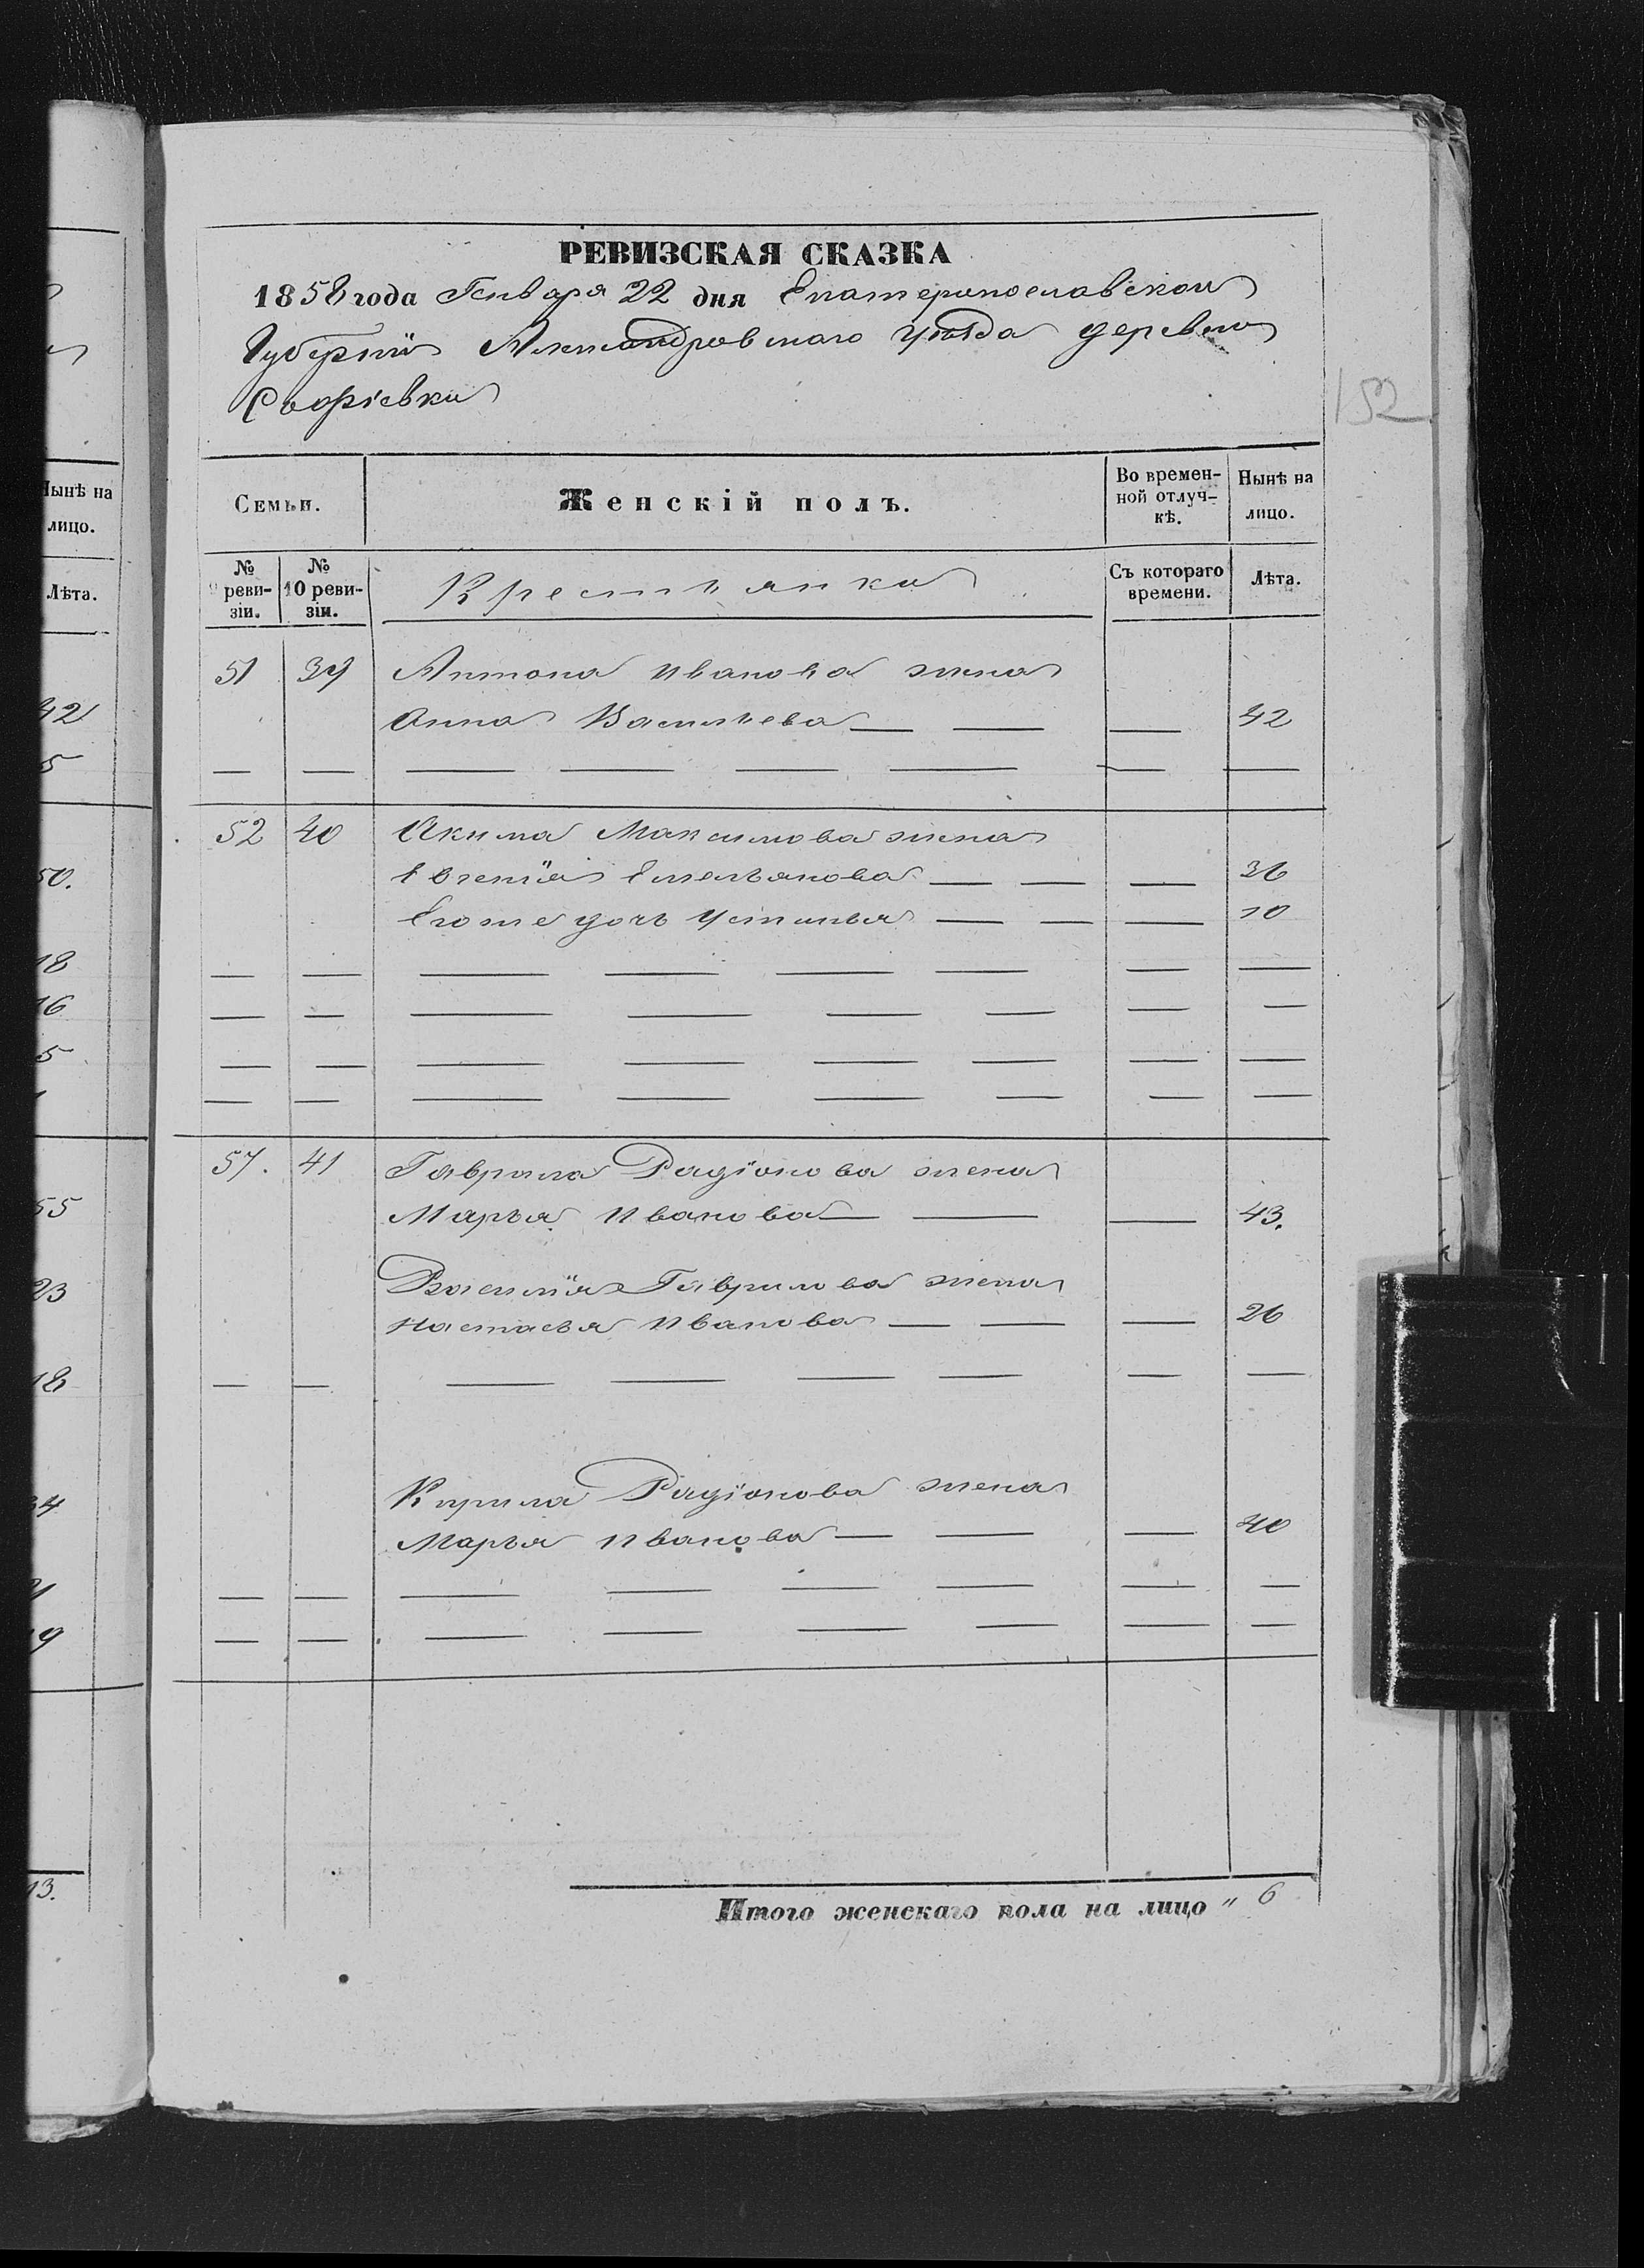 РЕВИЗСКАЯ СКАЗКА
1858 года Генваря 22 дня Екатеринославской
Губерніи Александровскаго уѣзда деревни
Софіевки
152
Семьи.
Женскій полъ.
Во времен-
ной отлуч-
кѣ.
Нынѣ на
лицо.
№
9 реви-
зіи.
№
10 реви-
зіи.
Крестьянки
Съ котораго
времени.
Лѣта.
51 39 Антона Иванова жена
Анна Васильева — — — 42
52 40 Акима Максимова жена
Евгенія Емельянова — — — 36
Его же дочь Устинья — — — 10
57. 41 Гаврила Радіонова жена
Марья Иванова — — — 43.
Василія Гаврилова жена
Настасья Иванова — — — 26
Кирила Радіонова жена
Марья Иванова — — — 40
Итого женскаго пола на лицо „ 6
Нынѣ на
лицо.
Лѣта.
42
5
50.
18
16
5
1
55
23
18
34
13.